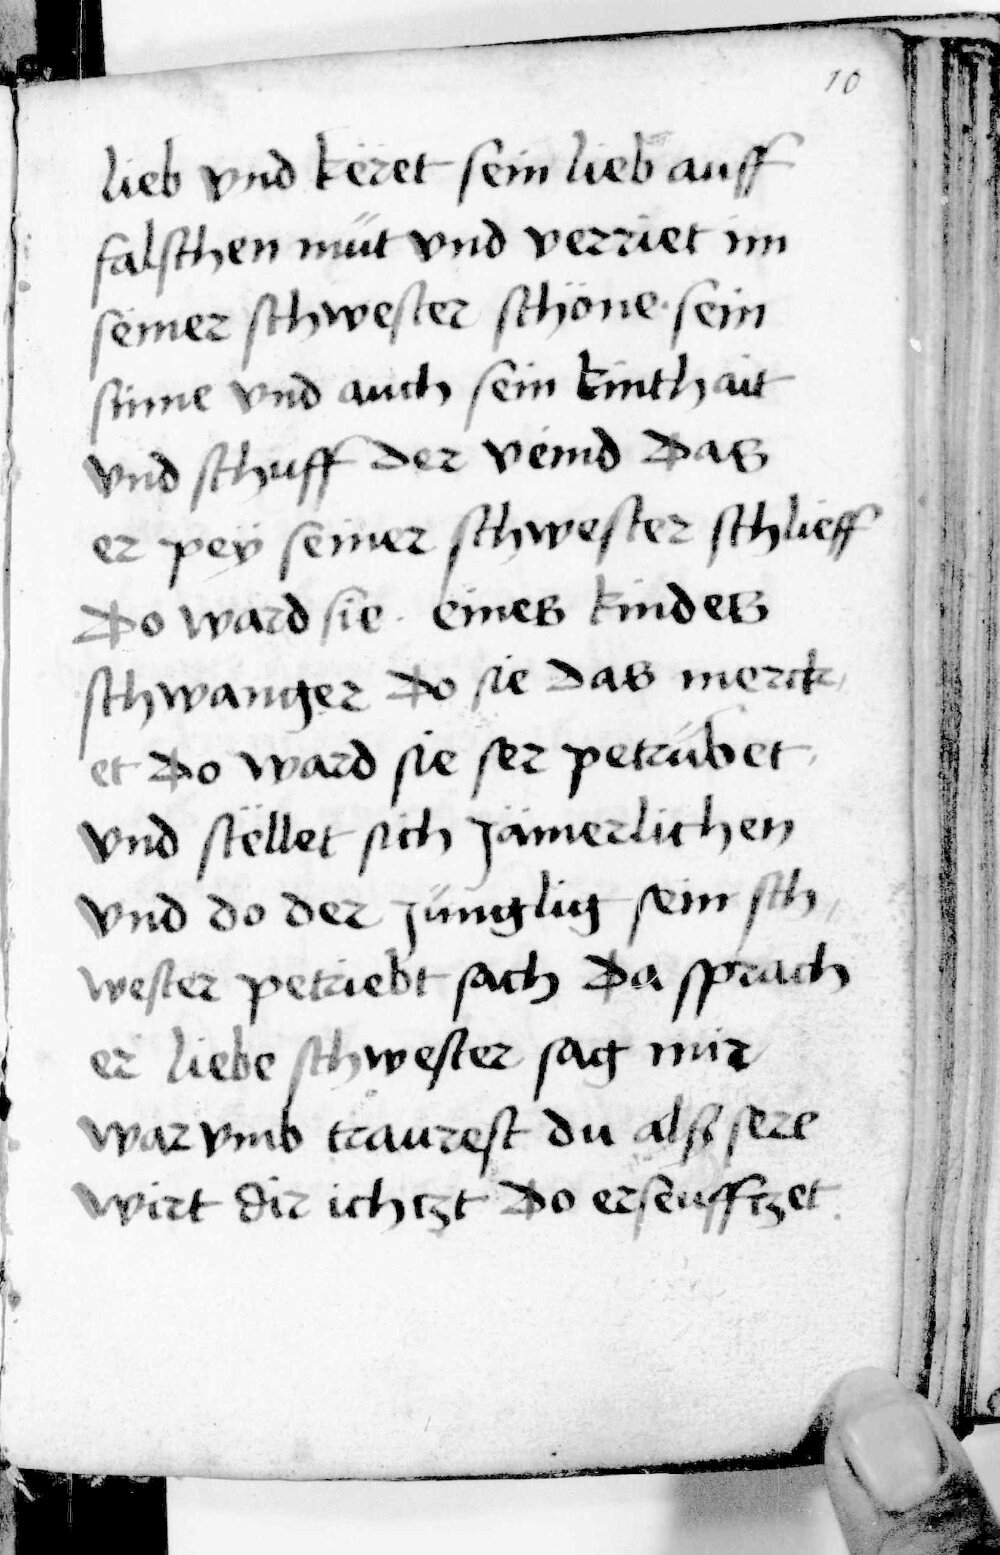 10
lieb vnd këret sein lieb auff
falschen müt vnd verriet im
seiner schwester schöne · sein
sinne vnd auch sein kinthait
vnd schuff der veind Das
er pey seiner schwester schlieff
Do ward sie · eines kindes
schwanger Do sie das merck
et Do ward sie ser petrübet
vnd stëllet sich Jämerlichen
vnd do der Jünglig sein sch
wester petriebt sach Da sprach
er liebe schwester sag mir
war vmb traurest du also sere
wirt dir ichtzt Do erseufftzet